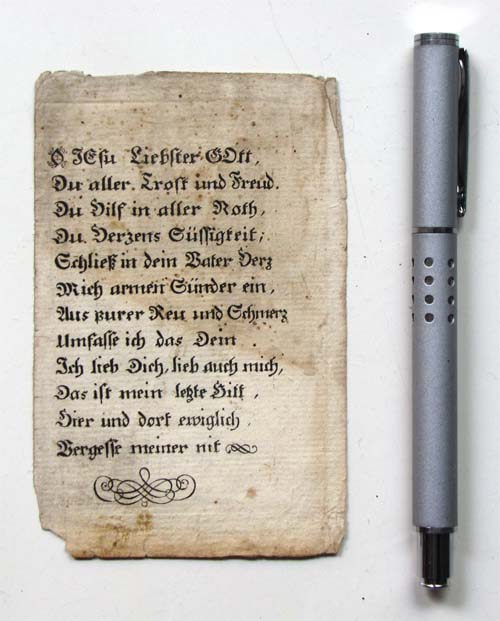 O JEsu Liebster GOtt,
Du aller Trost und Freud.
Du Hilf in aller Noth,
Du Herzens Süssigkeit;
Schließ in dein Vater Herz
Mich armen Sünder ein,
Aus purer Reu und Schmerz
Umfasse ich das Dein.
Ich lieb Dich, lieb auch mich,
Das ist mein letzte Bitt,
Hier und dort ewiglich
Vergesse meiner nit